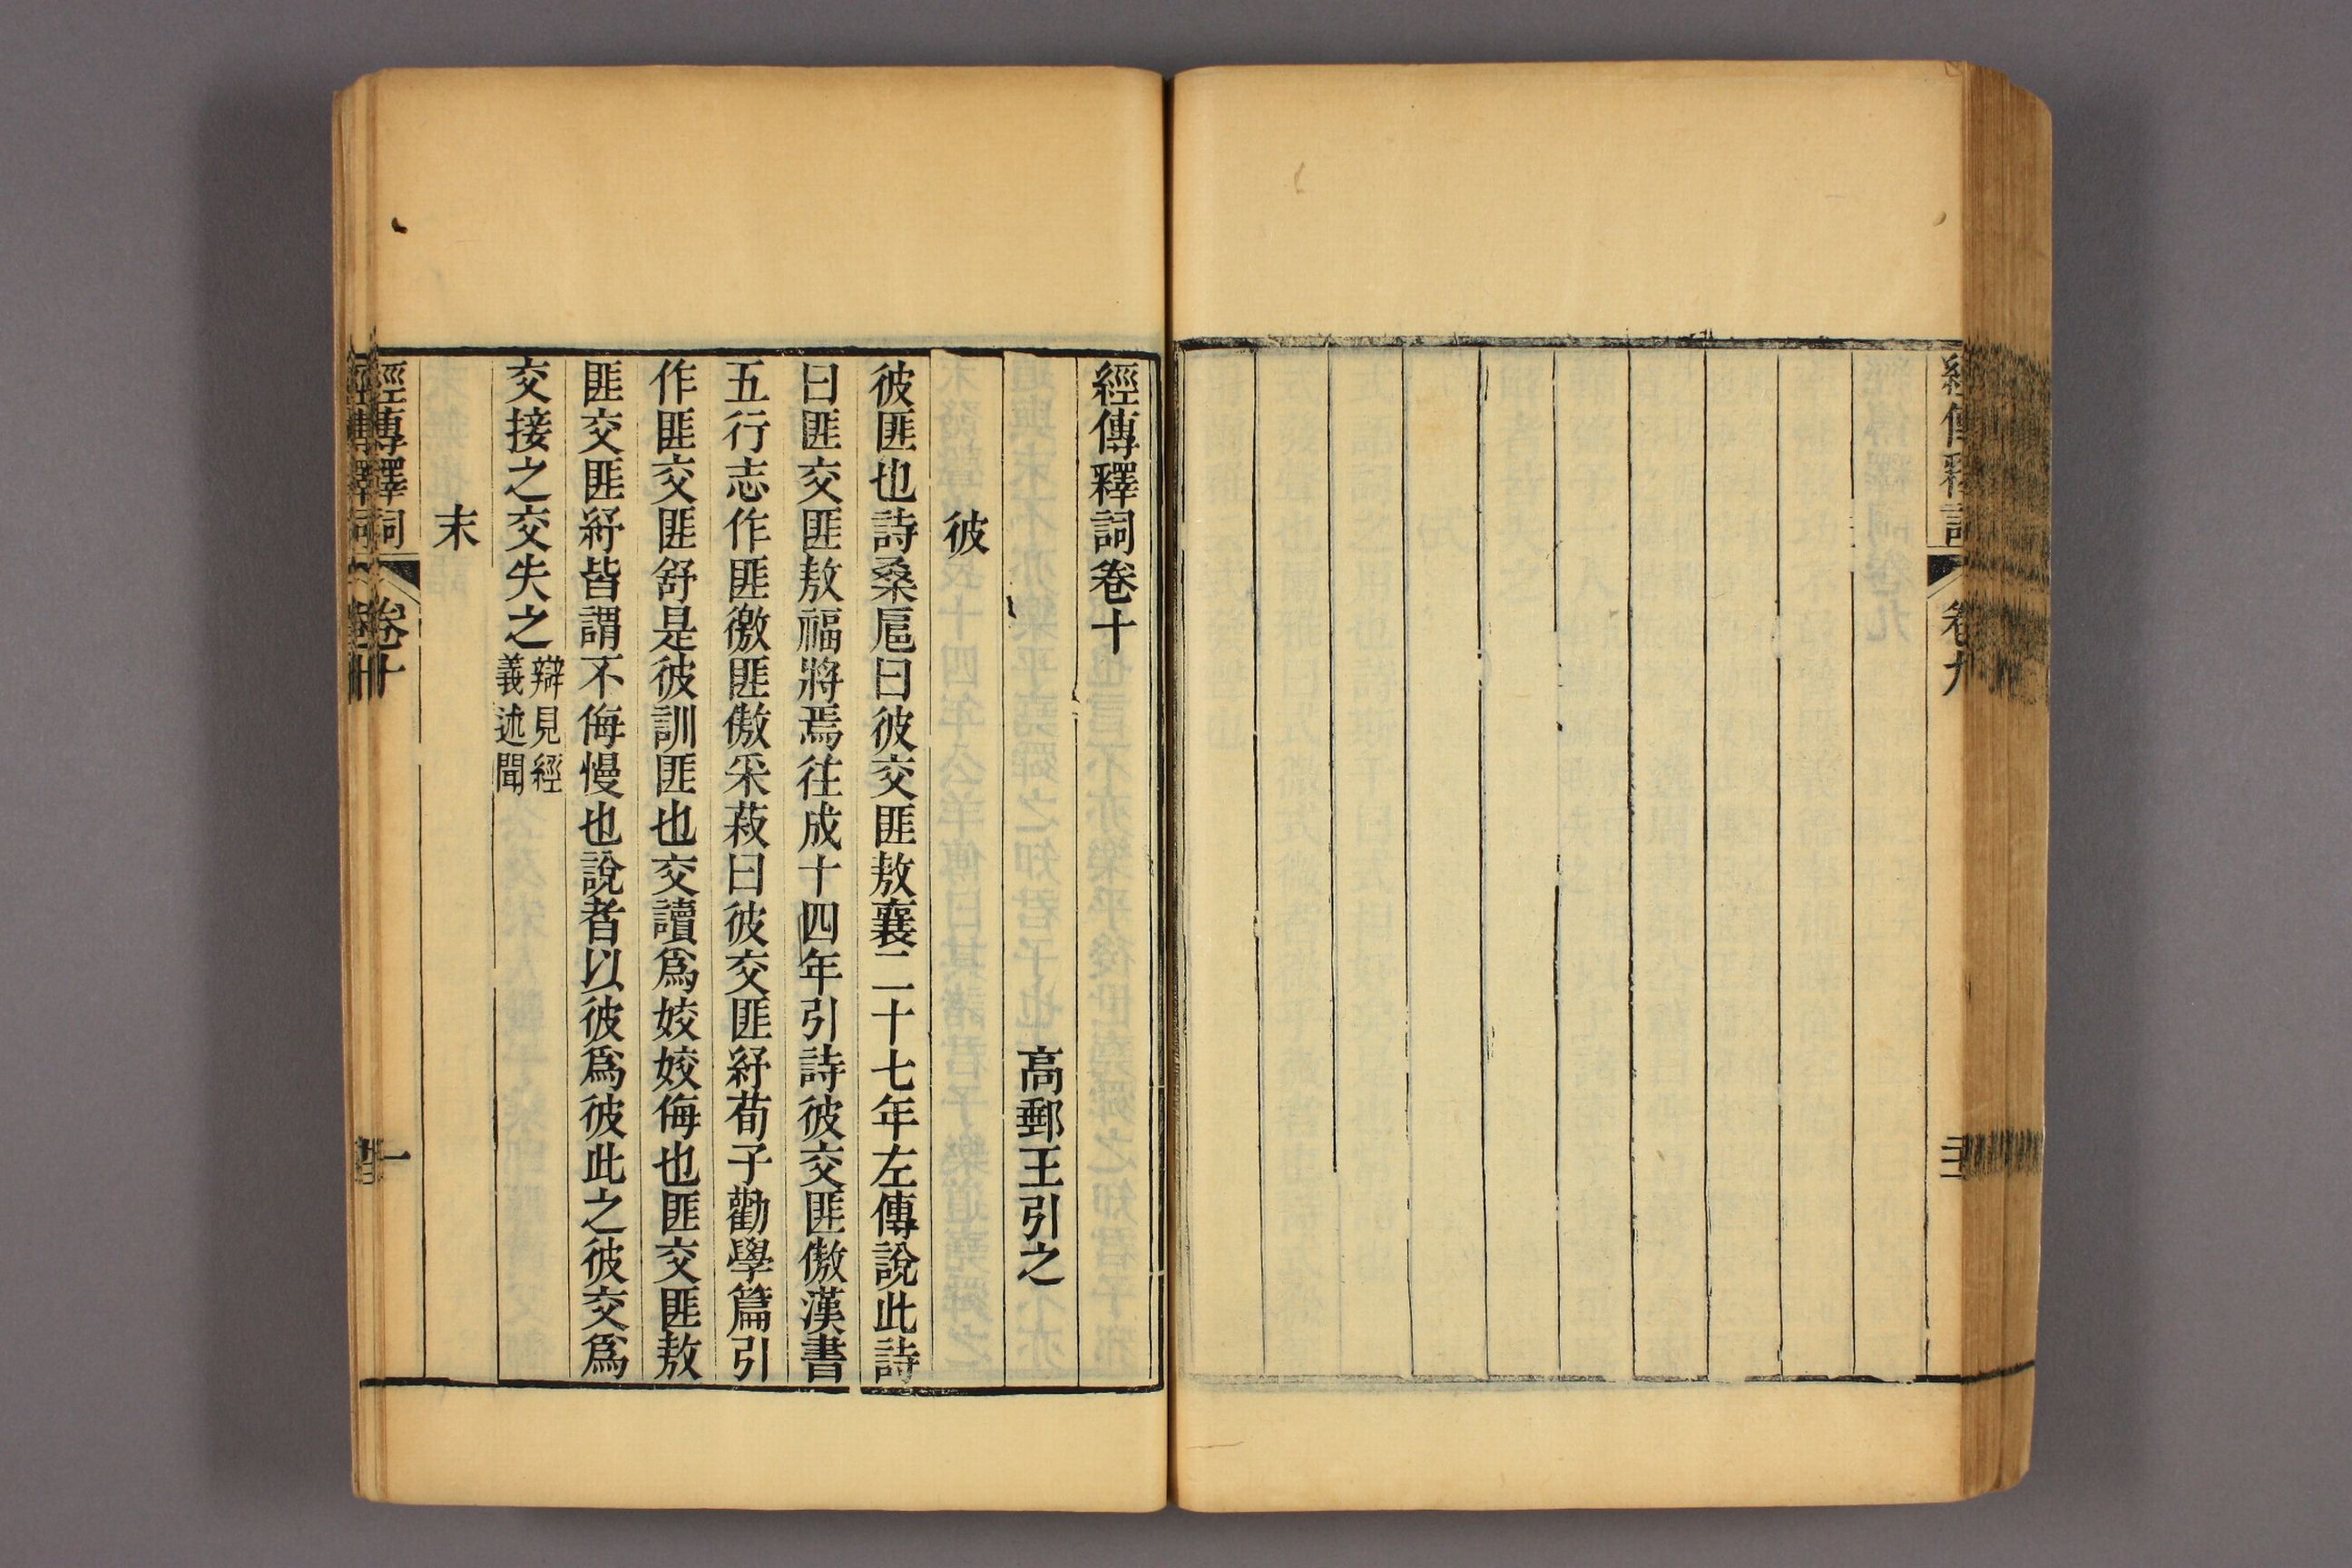 經傳釋詞
卷九
經傳釋詞卷十
高郵王引之
彼
彼匪也詩桑扈曰彼交匪敖襄二十七年左傳說此詩
曰匪交匪敖福將焉往成十四年引詩彼交匪傲漢書
五行志作匪徼匪傲采菽曰彼交匪紓荀子勸學篇引
作匪交匪舒是彼訓匪也交讀爲姣姣侮也匪交匪敖
匪交匪紓皆謂不侮慢也說者以彼爲彼此之彼交爲
交接之交失之辯見經義述聞
末
經傳釋詞
卷十
一